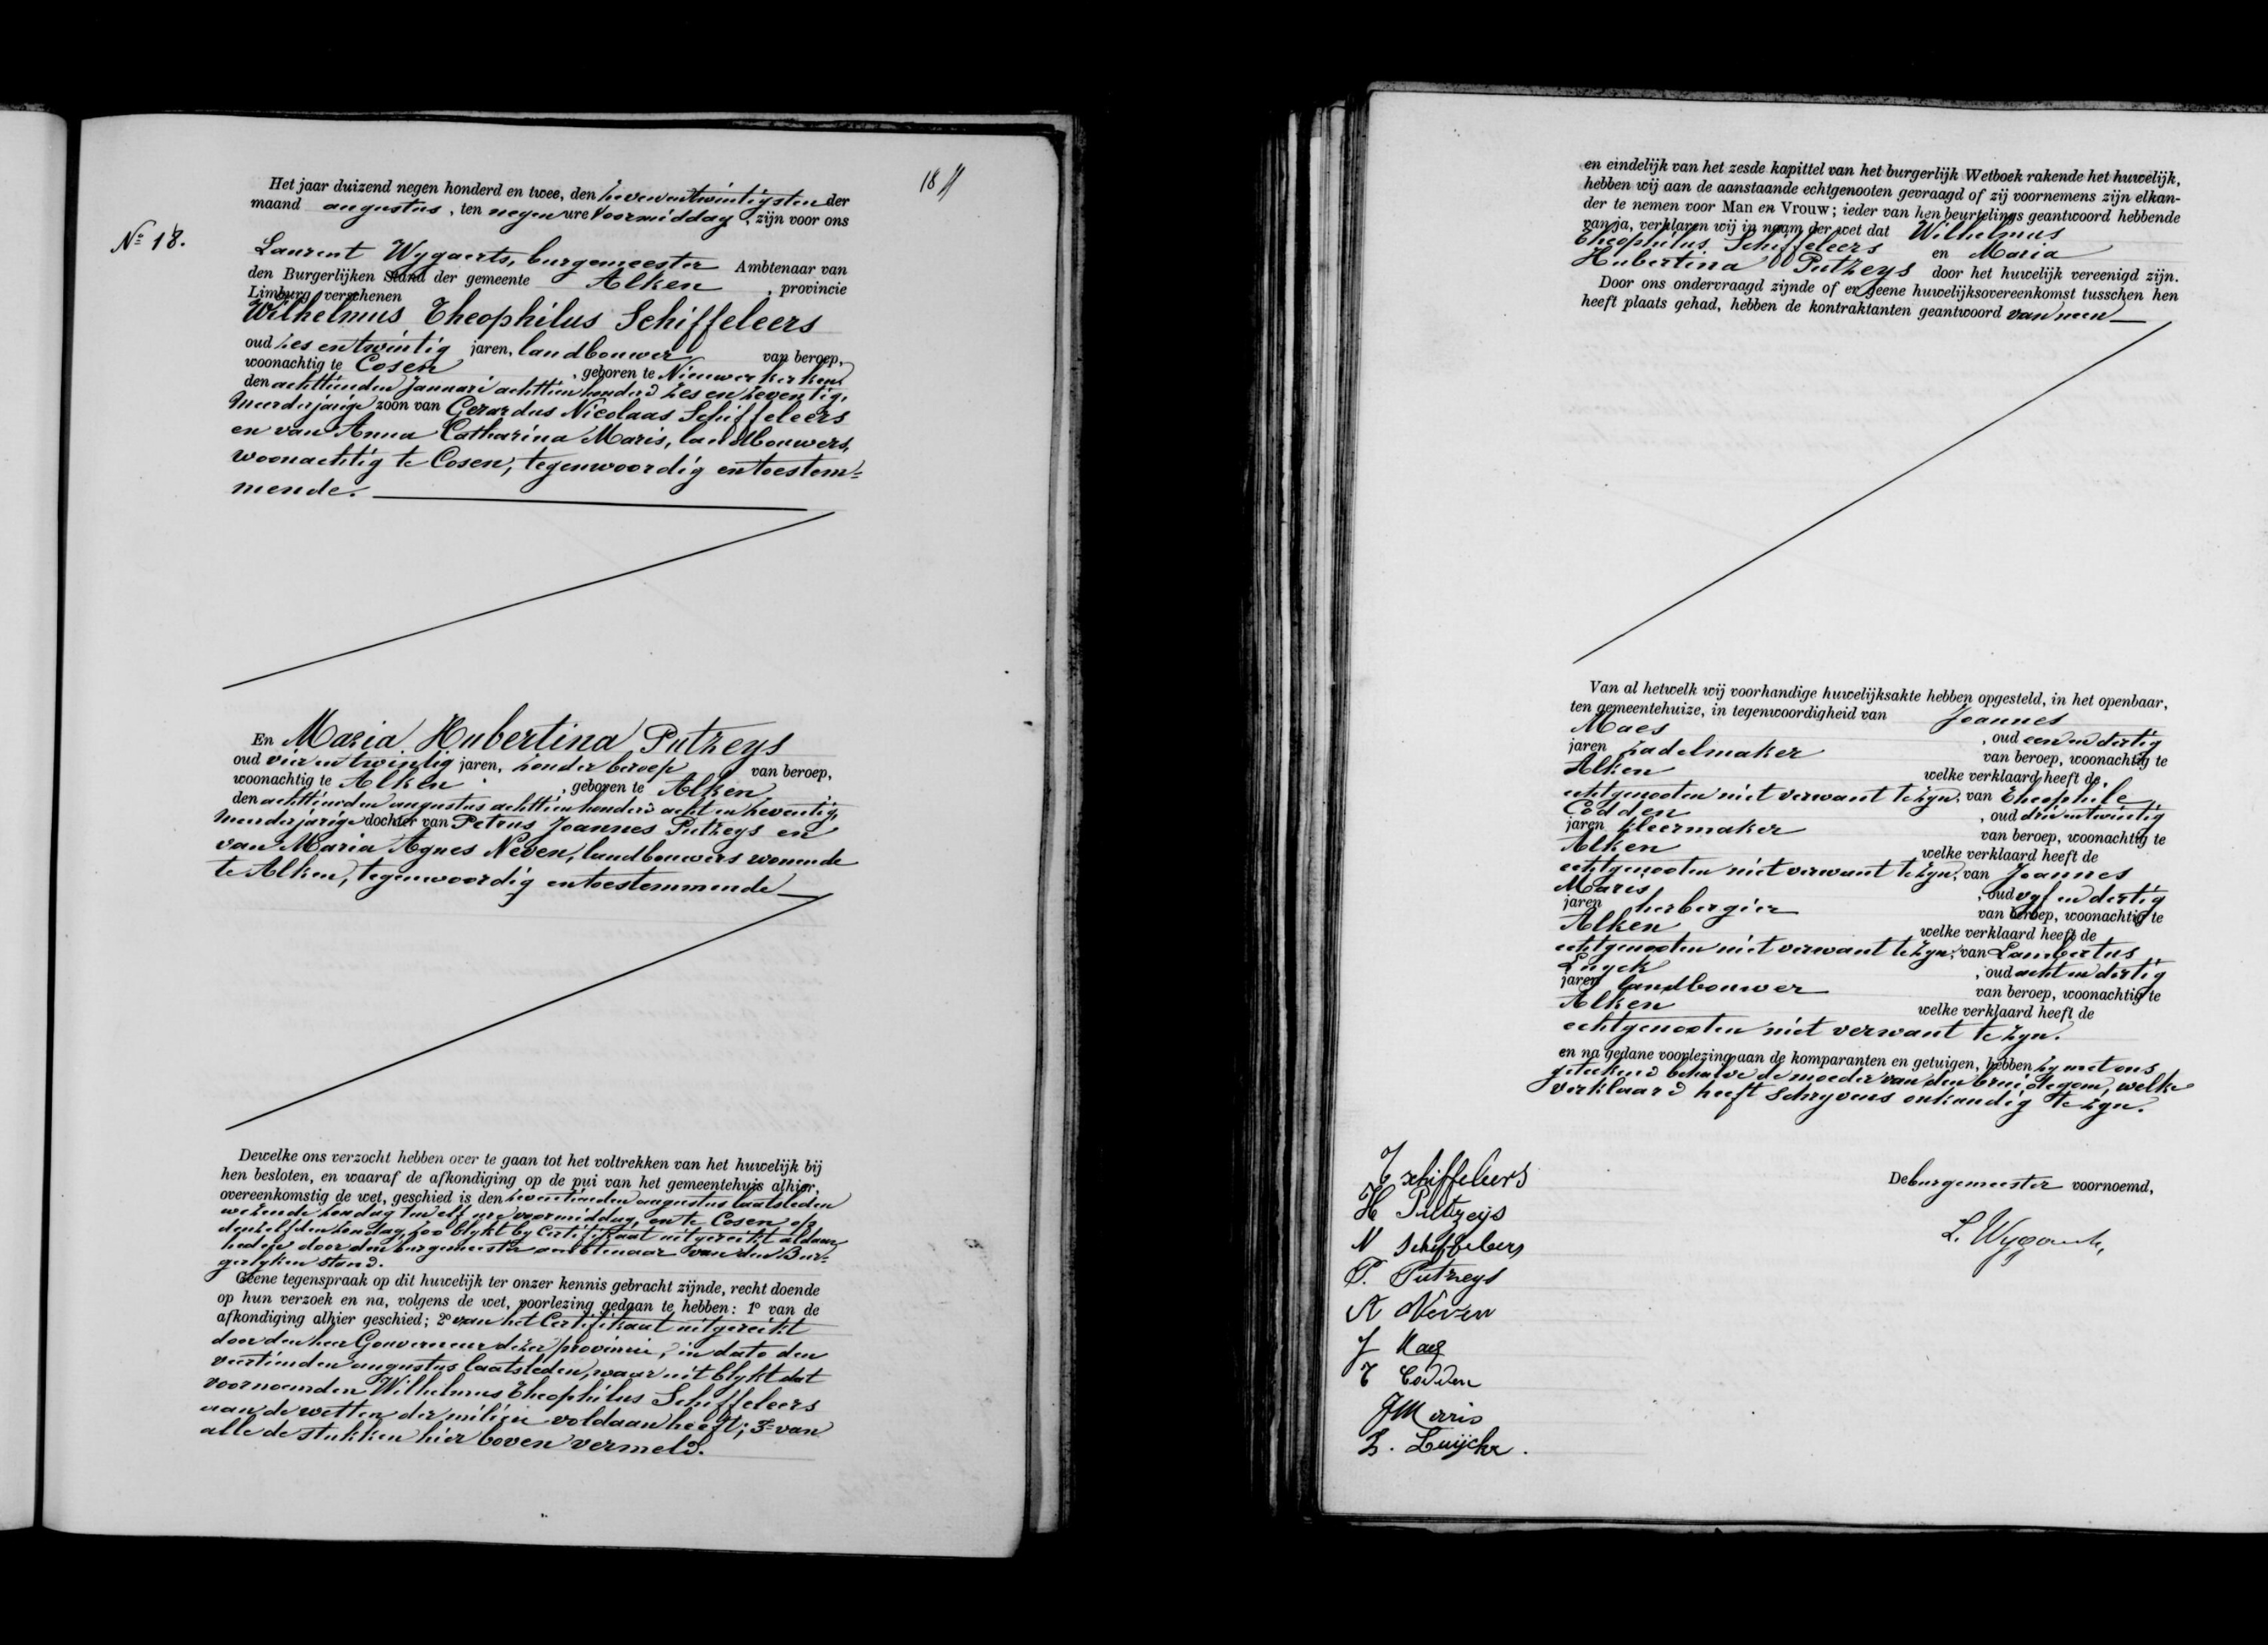 18
Het jaar duizend negen honderd en twee, den zevenentwintigsten der
maand augustus, ten negen ure voormiddag, zijn voor ons
Nº 18.
Laurent Wygaerts, burgemeester Ambtenaar van
den Burgerlijken Stand der gemeente Alken, provincie
Limburg verschenen
Wilhelmus Theophilus Schiffeleers
oud zes en twintig jaren, landbouwer van beroep,
woonachtig te Cosen, geboren te Nieuwerkerken
den achttienden Januari achttien honderd zes en zeventig,
meerderjarige zoon van Gerardus Nicolaas Schiffeleers
en van Anna Catharina Maris, landbouwers,
woonachtig te Cosen, tegenwoordig en toestem=
mende.
En Maria Hubertina Putzeys
oud vier en twintig jaren, zonder beroep van beroep,
woonachtig te Alken, geboren te Alken
den achttienden augustus achttien honderd acht en zeventig,
meerderjarige dochter van Petrus Joannes Putzeys en
van Maria Agnes Neven, landbouwers wonende
te Alken, tegenwoordig en toestemmende
Dewelke ons verzocht hebben over te gaan tot het voltrekken van het huwelijk bij
hen besloten, en waaraf de afkondiging op de pui van het gemeentehuis alhier,
overeenkomstig de wet, geschied is den zeventienden augustus laatsleden
wezende zondag ten elf ure voormiddag, en te Cosen op
denzelfden zondag, zoo blykt by Certifikaat uitgereikt aldaar
heden door den burgemeester ambtenaar van den Bur=
gerlyken stand.
Geene tegenspraak op dit huwelijk ter onzer kennis gebracht zijnde, recht doende
op hun verzoek en na, volgens de wet, voorlezing gedaan te hebben: 1º van de
afkondiging alhier geschied; 2º van het Certifikaat uitgereikt
door den heer Gouverneur dezer provincie, in dato den
veertienden augustus laatsleden, waaruit blykt dat
voornoemden Wilhelmus Theophilus Schiffeleers
aan de wetten der milicie voldaan heeft; 3º van
alle de stukken hier boven vermeld.
en eindelijk van het zesde kapittel van het burgerlijk Wetboek rakende het huwelijk,
hebben wij aan de aanstaande echtgenooten gevraagd of zij voornemens zijn elkan-
der te nemen voor Man en Vrouw; ieder van hen beurtelings geantwoord hebbende
van ja, verklaren wij in naam der wet dat Wilhelmus
Theophilus Schiffeleers en Maria
Hubertina Putzeys door het huwelijk vereenigd zijn.
Door ons ondervraagd zijnde of er geene huwelijksovereenkomst tusschen hen
heeft plaats gehad, hebben de kontraktanten geantwoord van neen
Van al hetwelk wij voorhandige huwelijksakte hebben opgesteld, in het openbaar,
ten gemeentehuize, in tegenwoordigheid van Joannes
Maes, oud een en dertig
jaren zadelmaker van beroep, woonachtig te
Alken welke verklaard heeft de
echtgenooten niet verwant te zyn, van Theophile
Codden, oud drie en twintig
jaren kleermaker van beroep, woonachtig te
Alken welke verklaard heeft de
echtgenooten niet verwant te zyn, van Joannes
Maris, oud vyf en dertig
jaren herbergier van beroep, woonachtig te
Alken welke verklaard heeft de
echtgenooten niet verwant te zyn, van Lambertus
Luyck, oud acht en dertig
jaren landbouwer van beroep, woonachtig te
Alken welke verklaard heeft de
echtgenooten niet verwant te zyn.
en na gedane voorlezing aan de komparanten en getuigen, hebben zy met ons
geteekend behalve de moeder van den bruidegom, welke
verklaard heeft schryvens onkundig te zyn.
T schiffeleers
H Putzeys
N Schiffeleers
P. Putzeys
A Neven
J Maes
T Codden
J Maris
L. Luijckx.
De burgemeester voornoemd,
L. Wygaerts,